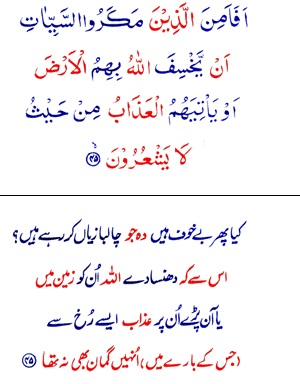 اَفَاَمِنَ الَّذِيْنَ مَكَرُوا السَّيِّاٰتِ
اَنْ يَّخْسِفَ اللّٰهُ بِهِمُ الْاَرْضَ
اَوْ يَاْتِيَهُمُ الْعَذَابُ مِنْ حَيْثُ
لَا يَشْعُرُوْنَ ۙ﴿۴۵﴾
کیا پھر بے خوف ہیں وہ جو چالبازیاں کر رہے ہیں؟
اس سے کہ دھنسا دے اللہ اُن کو زمین میں
یا آن پڑے اُن پر عذاب ایسے رُخ سے
(جس کے بارے میں) اُنہیں گمان بھی نہ تھا ﴿۴۵﴾